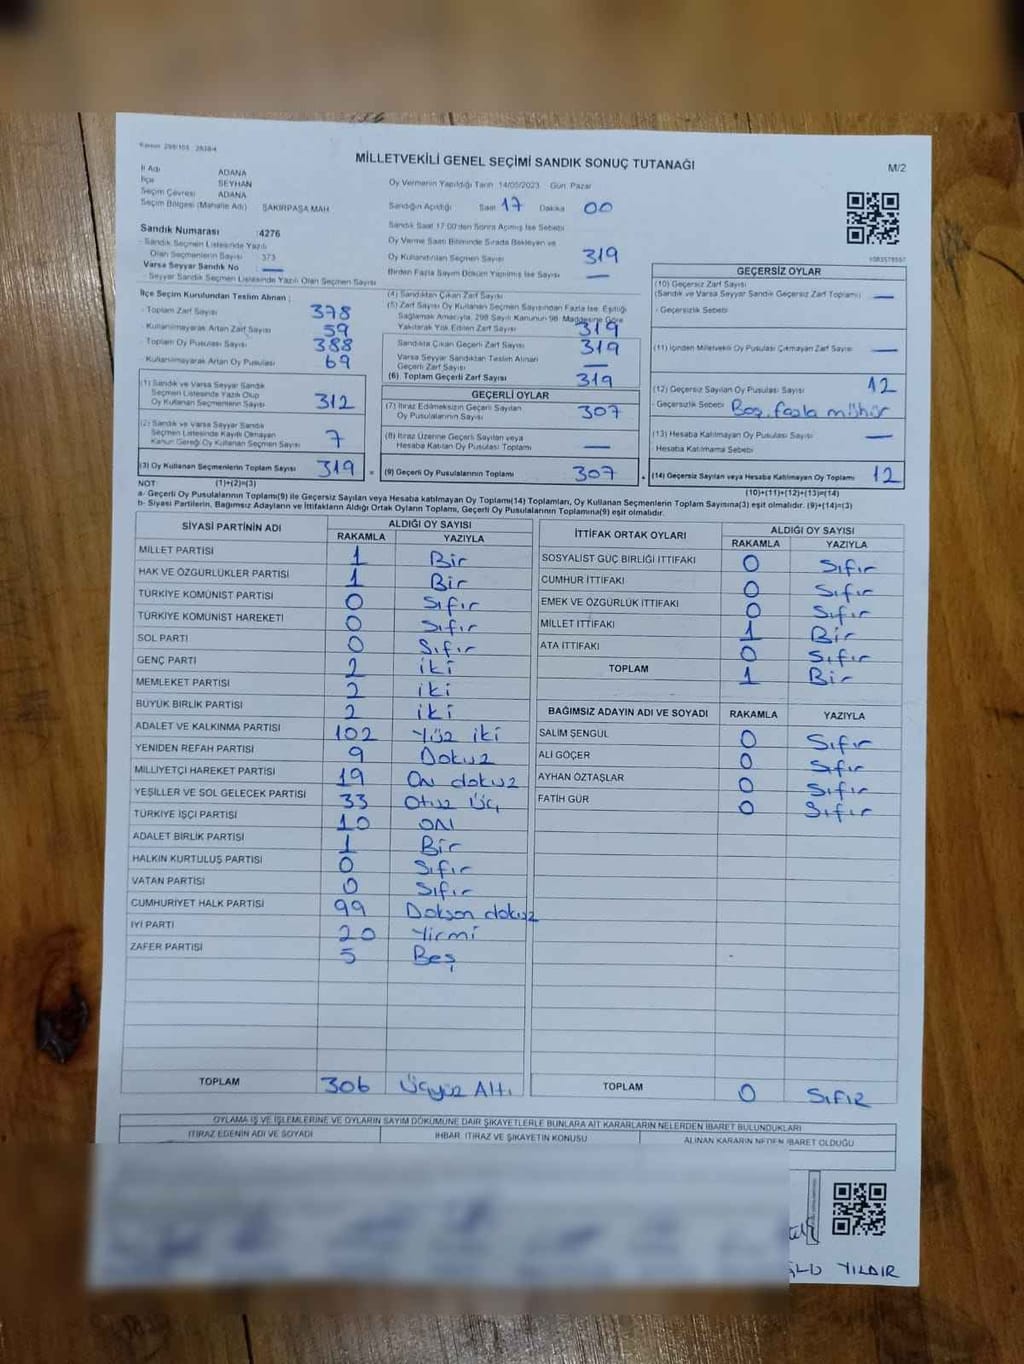 MİLLETVEKİLİ GENEL SEÇİMİ SANDIK SONUÇ TUTANAĞI
M/2
İl Adı ADANA
İlçe SEYHAN
Seçim Çevresi ADANA
Seçim Bölgesi (Mahalle Adı) ŞAKİRPAŞA MAH
Oy Vermenin Yapıldığı Tarih 14/05/2023 Gün Pazar
Sandığın Açıldığı Saat 17 Dakika 00
Sandık Saat 17:00'den Sonra Açılmış İse Sebebi
Sandık Numarası :4276
- Sandık Seçmen Listesinde Yazılı
Olan Seçmenlerin Sayısı 373
Varsa Seyyar Sandık No —
- Seyyar Sandık Seçmen Listesinde Yazılı Olan Seçmen Sayısı
Oy Verme Saati Bitiminde Sırada Bekleyen ve
Oy Kullandırılan Seçmen Sayısı 319
Birden Fazla Sayım Döküm Yapılmış İse Sayısı —
İlçe Seçim Kurulundan Teslim Alınan ;
- Toplam Zarf Sayısı 378
- Kullanılmayarak Artan Zarf Sayısı 59
- Toplam Oy Pusulası Sayısı 388
- Kullanılmayarak Artan Oy Pusulası 69
(1) Sandık ve Varsa Seyyar Sandık
Seçmen Listesinde Yazılı Olup
Oy Kullanan Seçmenlerin Sayısı 312
(2) Sandık ve Varsa Seyyar Sandık
Seçmen Listesinde Kayıtlı Olmayan
Kanun Gereği Oy Kullanan Seçmen Sayısı 7
(3) Oy Kullanan Seçmenlerin Toplam Sayısı 319
(1)+(2)=(3)
(4) Sandıktan Çıkan Zarf Sayısı
(5) Zarf Sayısı Oy Kullanan Seçmen Sayısından Fazla İse, Eşitliği
Sağlamak Amacıyla, 298 Sayılı Kanunun 98. Maddesine Göre
Yakılarak Yok Edilen Zarf Sayısı 319
Sandıkta Çıkan Geçerli Zarf Sayısı 319
Varsa Seyyar Sandıktan Teslim Alınan
Geçerli Zarf Sayısı —
(6) Toplam Geçerli Zarf Sayısı 319
GEÇERLİ OYLAR
(7) İtiraz Edilmeksizin Geçerli Sayılan
Oy Pusulalarının Sayısı 307
(8) İtiraz Üzerine Geçerli Sayılan veya
Hesaba Katılan Oy Pusulası Toplamı —
= (9) Geçerli Oy Pusulalarının Toplamı 307
GEÇERSİZ OYLAR
(10) Geçersiz Zarf Sayısı
(Sandık ve Varsa Seyyar Sandık Geçersiz Zarf Toplamı) —
- Geçersizlik Sebebi
(11) İçinden Milletvekili Oy Pusulası Çıkmayan Zarf Sayısı —
(12) Geçersiz Sayılan Oy Pusulası Sayısı 12
- Geçersizlik Sebebi Boş, fazla mühür
(13) Hesaba Katılmayan Oy Pusulası Sayısı —
Hesaba Katılmama Sebebi
+ (14) Geçersiz Sayılan veya Hesaba Katılmayan Oy Toplamı 12
(10)+(11)+(12)+(13)=(14)
NOT:
a- Geçerli Oy Pusulalarının Toplamı(9) ile Geçersiz Sayılan veya Hesaba katılmayan Oy Toplamı(14) Toplamları, Oy Kullanan Seçmenlerin Toplam Sayısına(3) eşit olmalıdır. (9)+(14)=(3)
b- Siyasi Partilerin, Bağımsız Adayların ve İttifakların Aldığı Ortak Oyların Toplamı, Geçerli Oy Pusulalarının Toplamına(9) eşit olmalıdır.
SİYASİ PARTİNİN ADI ALDIĞI OY SAYISI
RAKAMLA YAZIYLA
MİLLET PARTİSİ 1 Bir
HAK VE ÖZGÜRLÜKLER PARTİSİ 1 Bir
TÜRKİYE KOMÜNİST PARTİSİ 0 Sıfır
TÜRKİYE KOMÜNİST HAREKETİ 0 Sıfır
SOL PARTİ 0 Sıfır
GENÇ PARTİ 2 iki
MEMLEKET PARTİSİ 2 iki
BÜYÜK BİRLİK PARTİSİ 2 iki
ADALET VE KALKINMA PARTİSİ 102 Yüz iki
YENİDEN REFAH PARTİSİ 9 Dokuz
MİLLİYETÇİ HAREKET PARTİSİ 19 On dokuz
YEŞİLLER VE SOL GELECEK PARTİSİ 33 Otuz Üç
TÜRKİYE İŞÇİ PARTİSİ 10 ON
ADALET BİRLİK PARTİSİ 1 Bir
HALKIN KURTULUŞ PARTİSİ 0 Sıfır
VATAN PARTİSİ 0 Sıfır
CUMHURİYET HALK PARTİSİ 99 Doksan dokuz
İYİ PARTİ 20 Yirmi
ZAFER PARTİSİ 5 Beş
TOPLAM 306 Üçyüz Altı
İTTİFAK ORTAK OYLARI ALDIĞI OY SAYISI
RAKAMLA YAZIYLA
SOSYALİST GÜÇ BİRLİĞİ İTTİFAKI 0 Sıfır
CUMHUR İTTİFAKI 0 Sıfır
EMEK VE ÖZGÜRLÜK İTTİFAKI 0 Sıfır
MİLLET İTTİFAKI 1 Bir
ATA İTTİFAKI 0 Sıfır
TOPLAM 1 Bir
BAĞIMSIZ ADAYIN ADI VE SOYADI RAKAMLA YAZIYLA
SALİM ŞENGUL 0 Sıfır
ALİ GÖÇER 0 Sıfır
AYHAN ÖZTAŞLAR 0 Sıfır
FATİH GÜR 0 Sıfır
TOPLAM 0 SIFIR
OYLAMA İŞ VE İŞLEMLERİNE VE OYLARIN SAYIM DÖKÜMÜNE DAİR ŞİKAYETLERLE BUNLARA AİT KARARLARIN NELERDEN İBARET BULUNDUKLARI
İTİRAZ EDENİN ADI VE SOYADI İHBAR, İTİRAZ VE ŞİKAYETİN KONUSU ALINAN KARARIN NEDEN İBARET OLDUĞU
YILDIR